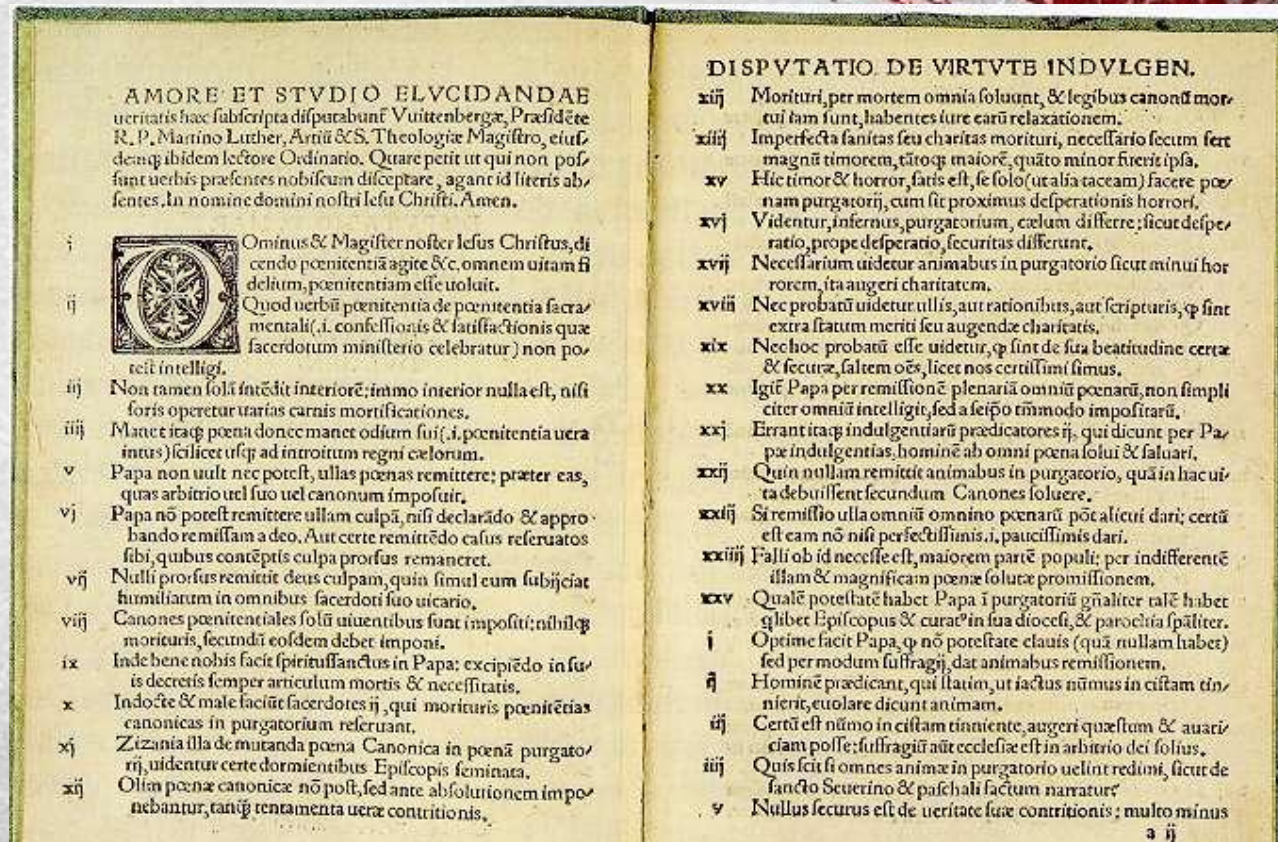 AMORE ET STVDIO ELVCIDANDAE
ueritatis hæc ſubſcripta diſputabunť Vuittenbergæ, Præſidēte
R. P. Martino Luther, Artiū & S. Theologiæ Magiſtro, eiuſ-
demq̃ ibidem lectore Ordinario. Quare petit ut qui non poſ-
ſunt uerbis præſentes nobiſcum diſceptare, agant id literis ab-
ſentes. In nomine domini noſtri Ieſu Chriſti. Amen.
i Ominus & Magiſter noſter Ieſus Chriſtus, di
cendo pœnitentiā agite &c. omnem uitam fi
delium, pœnitentiam eſſe uoluit.
ij Quod uerbū pœnitentia de pœnitentia ſacra-
mentali (.i. confeſſionis & ſatiſfactionis quæ
ſacerdotum miniſterio celebratur) non po-
teſt intelligi.
iij Non tamen ſolā intēdit interiorē: immo interior nulla eſt, niſi
foris operetur uarias carnis mortificationes.
iiij Manet itaq̃ pœna donec manet odium ſui (.i. pœnitentia uera
intus) ſcilicet uſq̃ ad introitum regni cælorum.
v Papa non uult nec poteſt, ullas pœnas remittere: præter eas,
quas arbitrio uel ſuo uel canonum impoſuit.
vj Papa nō poteſt remittere ullam culpā, niſi declarādo & appro-
bando remiſſam a deo. Aut certe remittēdo caſus reſeruatos
ſibi, quibus contēptis culpa prorſus remaneret.
vij Nulli prorſus remittit deus culpam, quin ſimul eum ſubijciat
humiliatum in omnibus ſacerdoti ſuo uicario.
viij Canones pœnitentiales ſolū uiuentibus ſunt impoſiti: nihilq̃
morituris, ſecundū eoſdem debet imponi.
ix Inde bene nobis facit ſpirituſſanctus in Papa: excipiēdo in ſu-
is decretis ſemper articulum mortis & neceſſitatis.
x Indocte & male faciūt ſacerdotes ij, qui morituris pœnitētias
canonicas in purgatorium reſeruant.
xj Zizania illa de mutanda pœna Canonica in pœnā purgato-
rij, uidentur certe dormientibus Epiſcopis ſeminata.
xij Olim pœnæ canonicæ nō poſt, ſed ante abſolutionem impo-
nebantur, tanq̃ tentamenta ueræ contritionis.
DISPVTATIO DE VIRTVTE INDVLGEN.
xiij Morituri, per mortem omnia ſoluunt, & legibus canonū mor-
tui iam ſunt, habentes iure earū relaxationem.
xiiij Imperfecta ſanitas ſeu charitas morituri, neceſſario ſecum fert
magnū timorem, tātoq̃ maiorē, quāto minor fuerit ipſa.
xv Hic timor & horror, ſatis eſt, ſe ſolo (ut alia taceam) facere pœ-
nam purgatorij, cum ſit proximus deſperationis horrori.
xvj Videntur, infernus, purgatorium, cælum differre: ſicut deſpe-
ratio, prope deſperatio, ſecuritas differunt.
xvij Neceſſarium uidetur animabus in purgatorio ſicut minui hor
rorem, ita augeri charitatem.
xviij Nec probatū uidetur ullis, aut rationibus, aut ſcripturis, ꝙ ſint
extra ſtatum meriti ſeu augendæ charitatis.
xix Nec hoc probatū eſſe uidetur, ꝙ ſint de ſua beatitudine certæ
& ſecuræ, ſaltem oēs, licet nos certiſſimi ſimus.
xx Igiť Papa per remiſſionē plenariā omniū pœnarū, non ſimpli
citer omniū intelligit, ſed a ſeipſo tm̄modo impoſitarū.
xxj Errant itaq̃ indulgentiarū prædicatores ij, qui dicunt per Pa-
pæ indulgentias, hominē ab omni pœna ſolui & ſaluari.
xxij Quin nullam remittit animabus in purgatorio, quā in hac ui-
ta debuiſſent ſecundum Canones ſoluere.
xxiij Si remiſſio ulla omniū omnino pœnarū pōt alicui dari: certū
eſt eam nō niſi perfectiſſimis .i. pauciſſimis dari.
xxiiij Falli ob id neceſſe eſt, maiorem partē populi: per indifferentē
illam & magnificam pœnæ ſolutæ promiſſionem.
xxv Qualē poteſtatē habet Papa ī purgatoriū gn̄aliter talē habet
q̃libet Epiſcopus & curatꝰ in ſua dioceſi, & parochia ſpāliter.
i Optime facit Papa, ꝙ nō poteſtate clauis (quā nullam habet)
ſed per modum ſuffragij, dat animabus remiſſionem.
ij Hominē prædicant, qui ſtatim, ut iactus nūmus in ciſtam tin-
nierit, euolare dicunt animam.
iij Certū eſt nūmo in ciſtam tinniente, augeri quæſtum & auari-
ciam poſſe: ſuffragiū aūt eccleſiæ eſt in arbitrio dei ſolius.
iiij Quis ſcit ſi omnes animæ in purgatorio uelint redimi, ſicut de
ſancto Seuerino & paſchali factum narratur?
v Nullus ſecurus eſt de ueritate ſuæ contritionis: multo minus
a ij